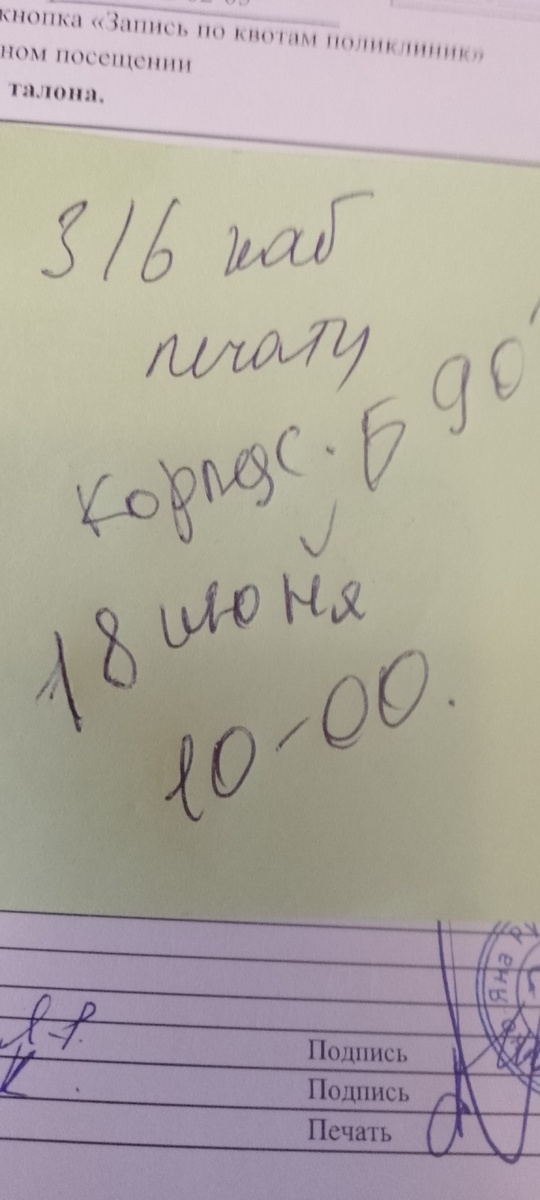 кнопка «Запись по квотам поликлиник»
ном посещении
талона.
316 каб
печать
корпус. Б 90
18 июня
10-00.
Подпись
Подпись
Печать